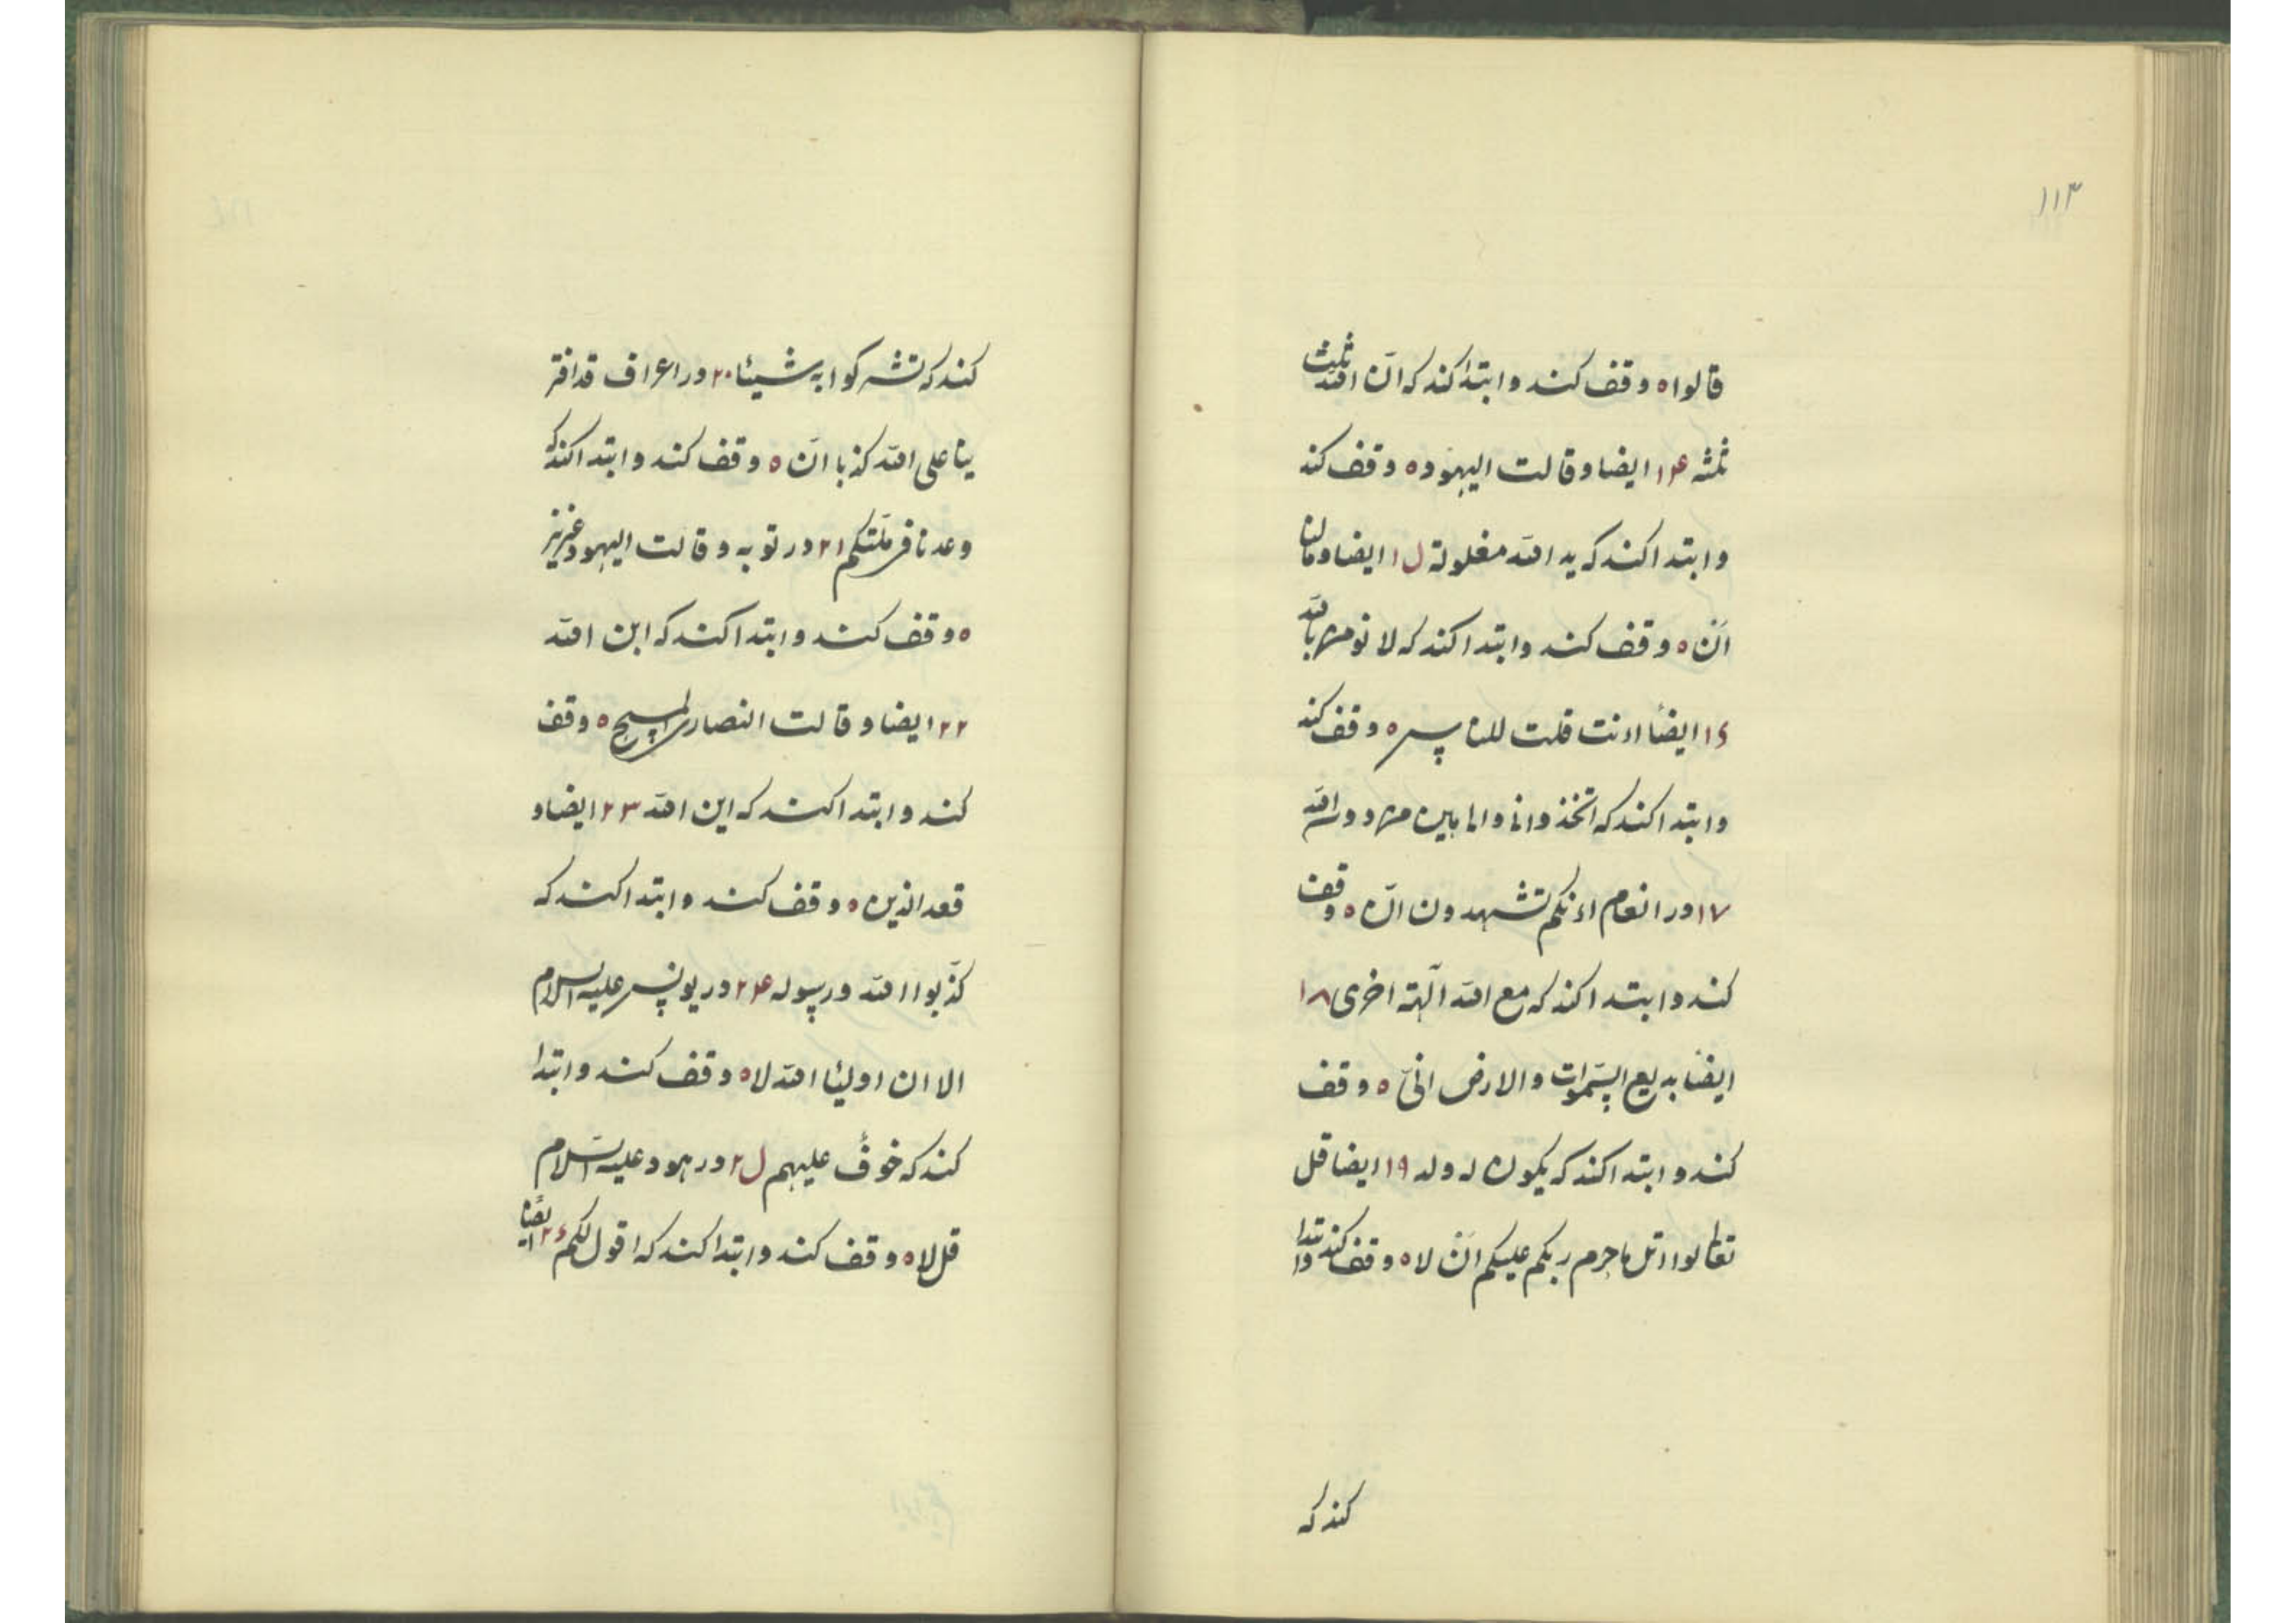 ۱۱۳
قالوا ه وقف کند و ابتدا کند که انّ الله ثلث
ثلثه ۱۴ ایضا و قالت الیهود ه وقف کند
و ابتدا کند که ید الله مغلولة ل۱ ایضا و مالنا
انّ ه وقف کند و ابتدا کند که لا نومن بالله
۱۶ ایضاً اءنت قلت للناس ه وقف کند
و ابتدا کند که اتخذوانی و امی الهین من دون الله
۱۷ در انعام اءنکم تشهدون انّ ه وقف
کند و ابتدا کند که مع الله آلهة اخری ۱۸
ایضاً بدیع السّموات و الارض انّی ه وقف
کند و ابتدا کند که یکون له ولد ۱۹ ایضا قل
تعالوا اتل ماحرم ربکم علیکم انّ لا ه وقف کند و ابتدا
کند که
کند که تشرکوا به شیئا ۲۰ در اعراف قد افتر
ینا علی الله کذبا انّ ه وقف کند و ابتدا کند که
وعدنا فی ملّتکم ۲۱ در توبه و قالت الیهود عزیز
ه وقف کند و ابتدا کند که ابن الله
۲۲ ایضا و قالت النصاری المسیح ه وقف
کند و ابتدا کند که ابن الله ۲۳ ایضا و
قعد الذین ه وقف کند و ابتدا کند که
کذّبوا الله و رسوله ۲۴ در یونس علیه السلام
الا ان اولیئا الله لا ه وقف کند و ابتدا
کند که خوفٌ علیهم ل۲ در هود علیه السّلام
قل لا ه وقف کند و ابتدا کند که اقول لکم ۲۶ ایضاً